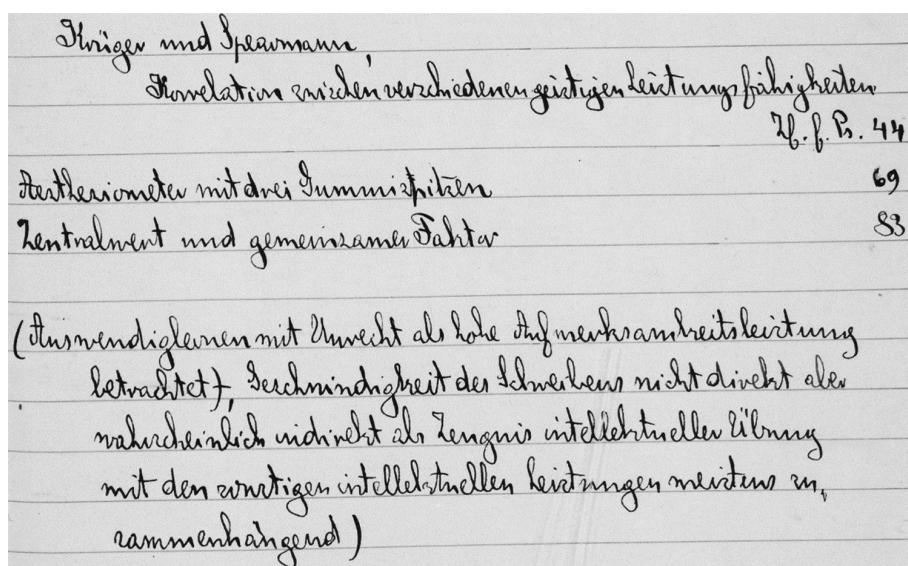 Krüger und Spearmann,
Korrelation zwischen verschiedenen geistigen Leistungsfähigkeiten
Zf. f. Ps. 44
Aesthesiometer mit drei Gummispitzen 69
Zentralwert und gemeinsamer Faktor 83
(Auswendiglernen mit Unrecht als hohe Aufmerksamkeitsleistung
betrachtet), Geschwindigkeit des Schreibens nicht direkt aber
wahrscheinlich indirekt als Zeugnis intellektueller Übung
mit den sonstigen intellektuellen Leistungen meistens zu,
sammenhängend)